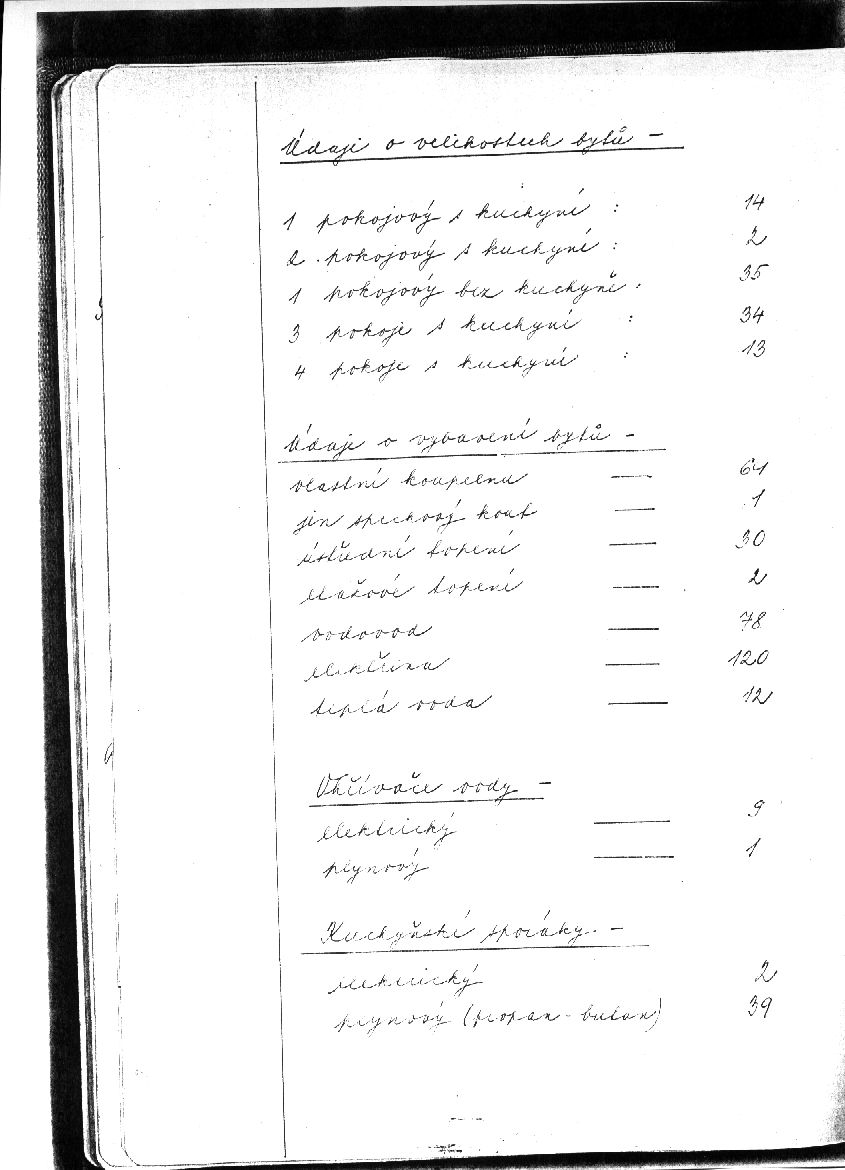 Údaje o velikostech bytů –
1 pokojový s kuchyní : 14
2 pokojový s kuchyní : 2
1 pokojový bez kuchyně : 35
3 pokoje s kuchyní : 34
4 pokoje s kuchyní : 13
Údaje o vybavení bytů –
vlastní koupelnu — 64
jen sprchový kout — 1
ústřední topení — 30
etažové topení — 2
vodovod — 78
elektřina — 120
teplá voda — 12
Ohřívače vody –
elektrický — 9
plynový — 1
Kuchyňské sporáky –
elektrický 2
plynový (propan-butan) 39